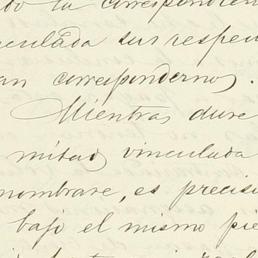 do la correspondien
nculada sus respeu
an correspondernos.
Mientras dure
mitad vinculada
nombrare, es precis
bajo el mismo pie